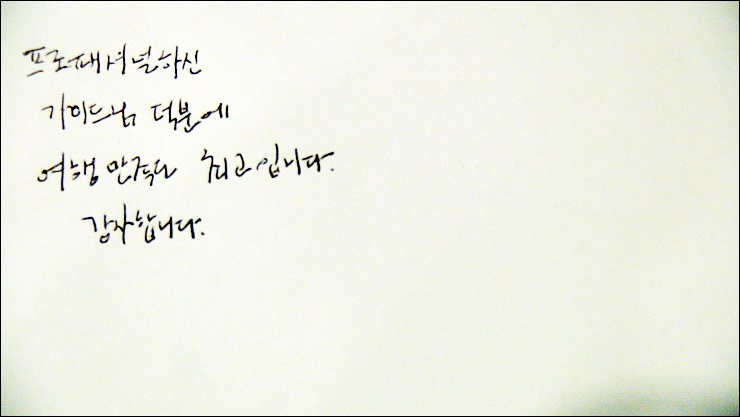 프로패셔널하신
가이드님 덕분에
여행 만족도 최고입니다.
감사합니다.